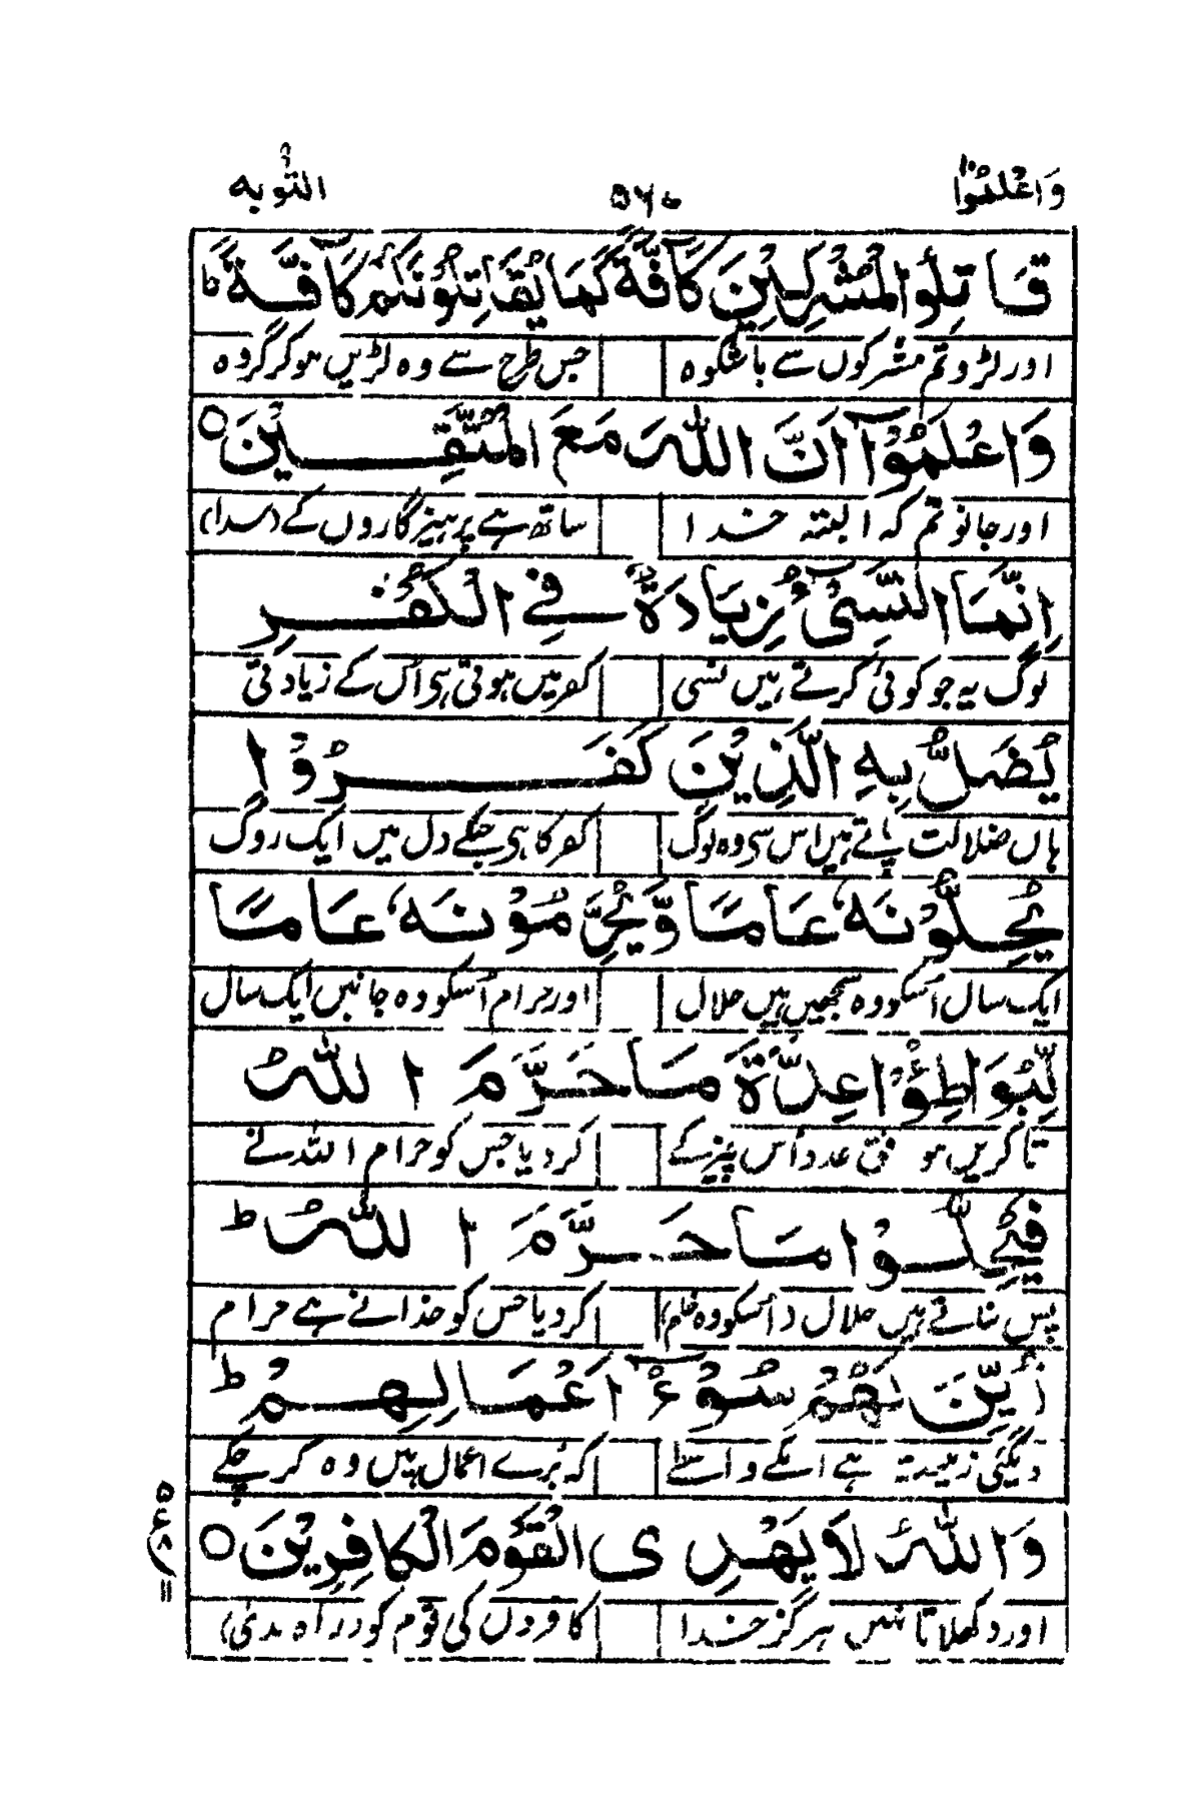 وَاعْلَمُوْٓا ۱۰ ۵۶۰ التَّوبه ۹
قَاتِلُوا الْمُشْرِكِيْنَ كَآفَّةً كَمَا يُقَاتِلُوْنَكُمْ كَآفَّةً ط
اور لڑو تم مشرکوں سے باشکوہ جس طرح سے وہ لڑیں ہوکر گروہ
وَاعْلَمُوْٓا اَنَّ اللّٰهَ مَعَ الْمُتَّقِيْنَ ○
اور جانو تم کہ البتہ خدا ساتھ ہے پرہیزگاروں کے (سدا)
اِنَّمَا النَّسِیْٓءُ زِيَادَةٌ فِی الْكُفْرِ
لوگ یہ جو کوئی کرتے ہیں نسی کفر میں ہوتی ہی اُس کے زیادتی
يُضَلُّ بِهِ الَّذِيْنَ كَفَرُوْا
ہاں ضلالت پاتے ہیں اس سی وہ لوگ کفر کا ہی جنکے دل میں ایک روگ
يُحِلُّوْنَهٗ عَامًا وَّ يُحَرِّمُوْنَهٗ عَامًا
ایک سال اُسکو وہ سمجھیں ہیں حلال اور حرام اُسکو وہ جانیں ایک سال
لِّيُوَاطِئُوْا عِدَّةَ مَا حَرَّمَ اللّٰهُ
تا کریں مو فق عدد اُس چیز کے کردیا جس کو حرام اللہ نے
فَيُحِلُّوْا مَا حَرَّمَ اللّٰهُ ط
پس بناتے ہیں حلال (اُسکو وہ ظلم) کردیا جس کو خدا نے ہے حرام
زُيِّنَ لَهُمْ سُوْٓءُ اَعْمَالِهِمْ ط
دیگئی زینت ہے انکے واسطے کہ بُرے اعمال ہیں وہ کر چکے
وَاللّٰهُ لَا يَهْدِی الْقَوْمَ الْكَافِرِيْنَ ○
اور دکھلاتا نہیں ہرگز خدا کافروں کی قوم کو (راہ ہدیٰ)